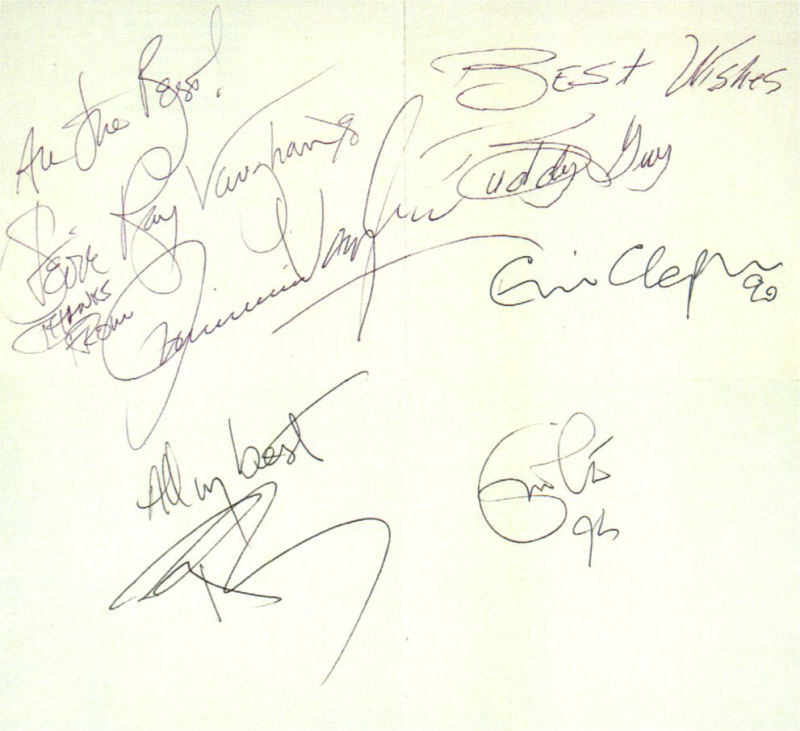 All the Best!
Stevie Ray Vaughan 90
THANKS
FROM
Jimmie Vaughan
Best Wishes
Buddy Guy
Eric Clapton
90
All my best